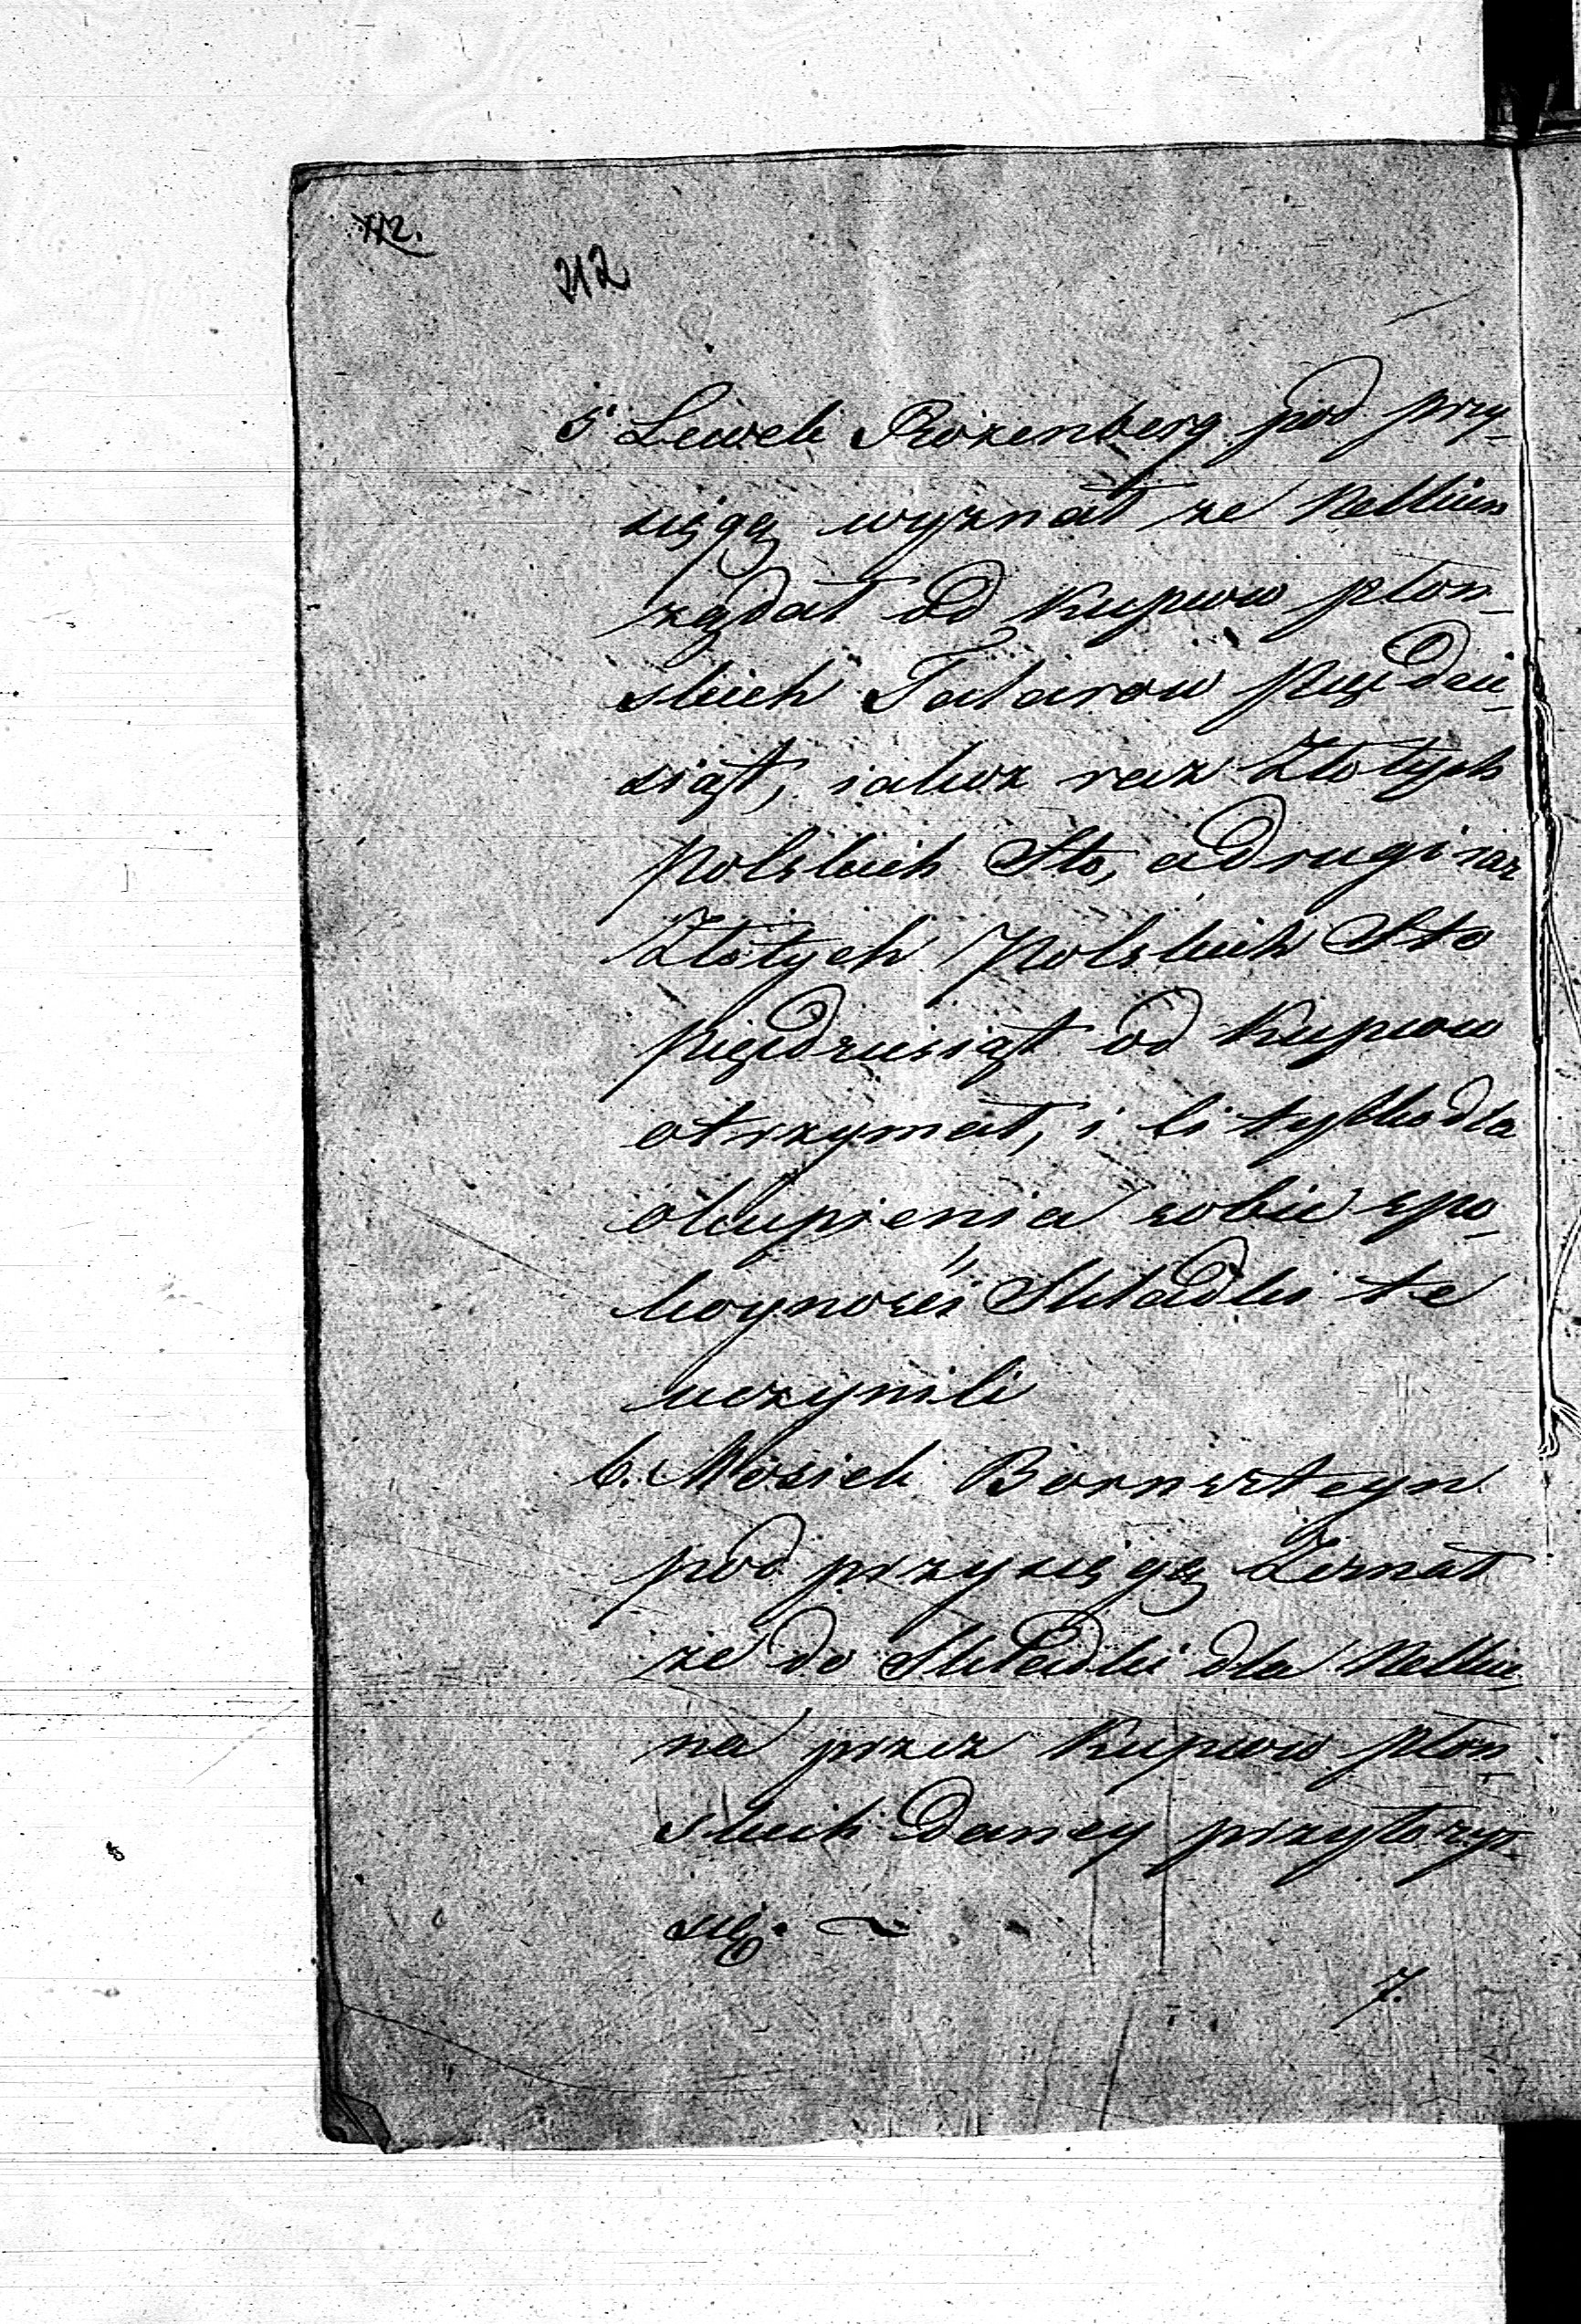 112.
212
5 Lewek Rozenberg pod przy-
sięgą wyznał że Nelkien
żądał od Kupców płon-
skich Talarow pięćdzie-
siąt, iakoz raz Złotych
Polskich Sto, a drugi raz
Złotych Polskich Sto
pięćdziesiąt od Kupcow
otrzymał, i li tylko dla
okupienia sobie spo-
koyności Składki te
uczynili
6. Mosiek Bornszteyn
pod przysięgą Zeznał
że do Składki dla Nelkie-
na przez Kupcow płon-
skich daney przyłożył
się.
7.